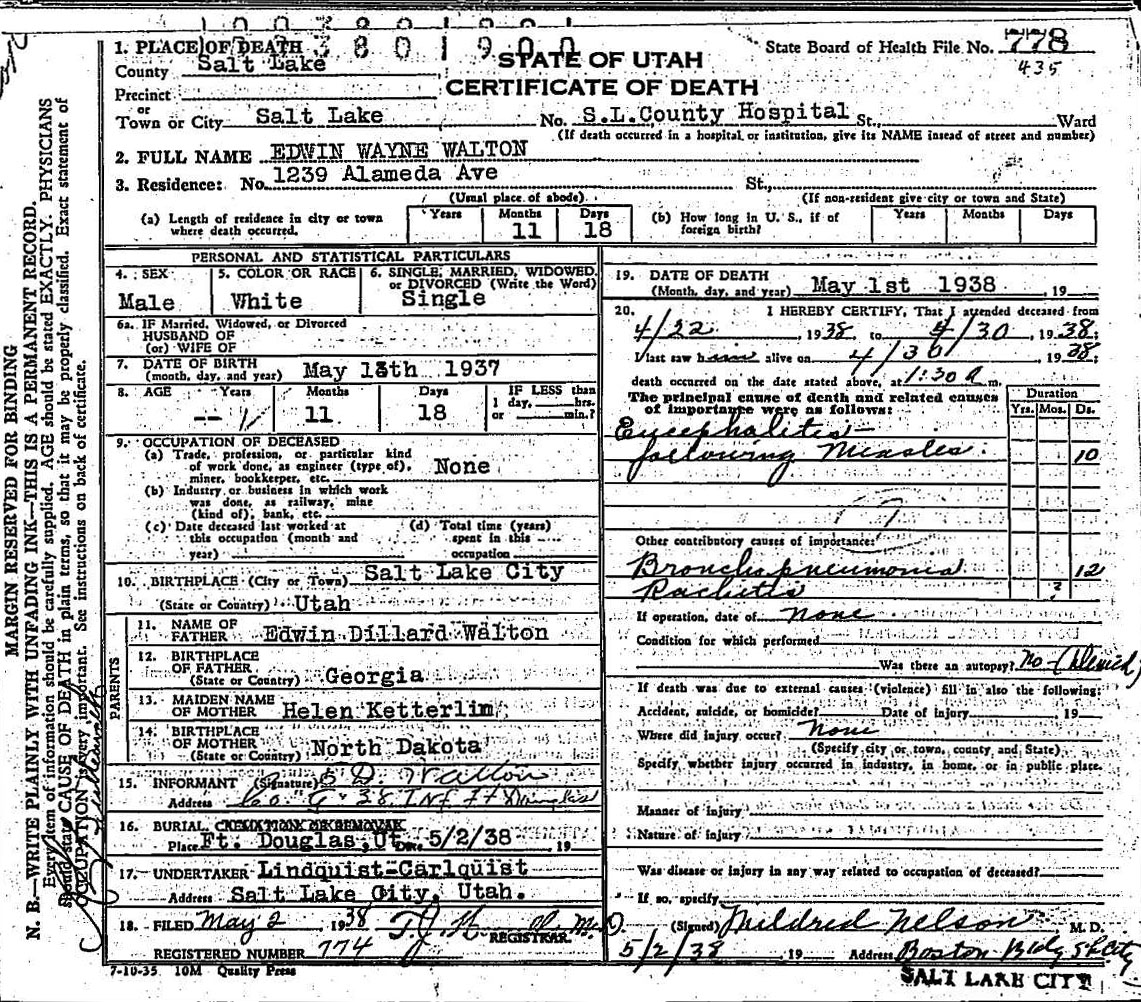 1. PLACE OF DEATH
County Salt Lake
Precinct
or
Town or City Salt Lake No. S.L.County Hospital St., Ward
(If death occurred in a hospital or institution, give its NAME insead of street and number)
STATE OF UTAH
CERTIFICATE OF DEATH
State Board of Health File No. 778
435
2. FULL NAME EDWIN WAYNE WALTON
3. Residence: No. 1239 Alameda Ave St.,
(Usual place of abode) (If non-resident give city or town and State)
(a) Length of residence in city or town where death occurred. Years Months 11 Days 18
(b) How long in U. S., if of foreign birth? Years Months Days
PERSONAL AND STATISTICAL PARTICULARS
4. SEX Male
5. COLOR OR RACE White
6. SINGLE, MARRIED, WIDOWED, or DIVORCED (Write the Word) Single
6a. IF Married, Widowed, or Divorced
HUSBAND OF
(or) WIFE OF
7. DATE OF BIRTH
(month, day, and year) May 13th 1937
8. AGE Years -- Months 11 Days 18 IF LESS than 1 day, hrs. or min.?
9. OCCUPATION OF DECEASED
(a) Trade, profession, or particular kind
of work done, as engineer (type of),
miner, bookkeeper, etc. None
(b) Industry or business in which work
was done, as railway, mine
(kind of), bank, etc.
(c) Date deceased last worked at
this occupation (month and
year)
(d) Total time (years)
spent in this
occupation
10. BIRTHPLACE (City or Town) Salt Lake City
(State or Country) Utah
PARENTS
11. NAME OF FATHER Edwin Dillard Walton
12. BIRTHPLACE OF FATHER
(State or Country) Georgia
13. MAIDEN NAME OF MOTHER Helen Ketterlim
14. BIRTHPLACE OF MOTHER
(State or Country) North Dakota
15. INFORMANT (Signature) E D. Walton
Address Co "G" 38 Inf Ft Douglas
16. BURIAL, CREMATION OR REMOVAL
Place Ft. Douglas, Ut Date 5/2/38 19
17. UNDERTAKER Lindquist-Carlquist
Address Salt Lake City, Utah.
18. FILED May 2 1938
REGISTRAR.
REGISTERED NUMBER 774
7-10-35 10M Quality Press
19. DATE OF DEATH
(Month, day, and year) May 1st 1938 , 19
20. I HEREBY CERTIFY, That I attended deceased from
4/22 , 1938, to 4/30 , 1938;
I last saw him alive on 4/30 , 1938;
death occurred on the date stated above, at 1:30 A m.
The principal cause of death and related causes
of importance were as follows:
Duration
Yrs. Mos. Ds.
Encephalitis
following Measles. 10
Other contributory causes of importance:
Bronchopneumonia 12
Rachitis ?
If operation, date of none
Condition for which performed
Was there an autopsy? no
If death was due to external causes (violence) fill in also the following:
Accident, suicide, or homicide? Date of injury 19
Where did injury occur? None
(Specify city or town, county and State)
Specify whether injury occurred in industry, in home, or in public place.
Manner of injury
Nature of injury
Was disease or injury in any way related to occupation of deceased?
If so, specify
(Signed) Mildred Nelson M. D.
5/2/38 19 Address Boston Bldg S L City
SALT LAKE CITY
MARGIN RESERVED FOR BINDING
N. B.—WRITE PLAINLY WITH UNFADING INK—THIS IS A PERMANENT RECORD.
Every item of information should be carefully supplied. AGE should be stated EXACTLY. PHYSICIANS
should state CAUSE OF DEATH in plain terms, so that it may be properly classified. Exact statement of
OCCUPATION is very important. See instructions on back of certificate.